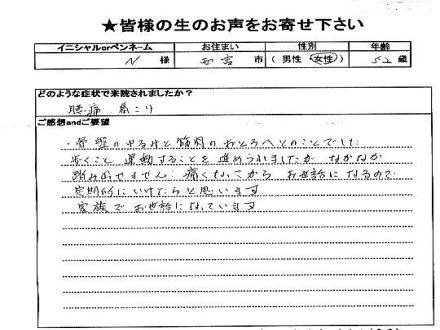 ★皆様の生のお声をお寄せ下さい
イニシャルorペンネーム お住まい 性別 年齢
N 様 市 (男性 女性) 52 歳
どのような症状で来院されましたか？
腰痛 肩こり
ご感想andご要望
・骨盤のゆるみと筋肉のおとろへとのことでした
歩くこと 運動することを進められましたが なかなか
踏み出せません。痛くなってから お世話になるので
定期的にいけたらと思います
家族でお世話になっています